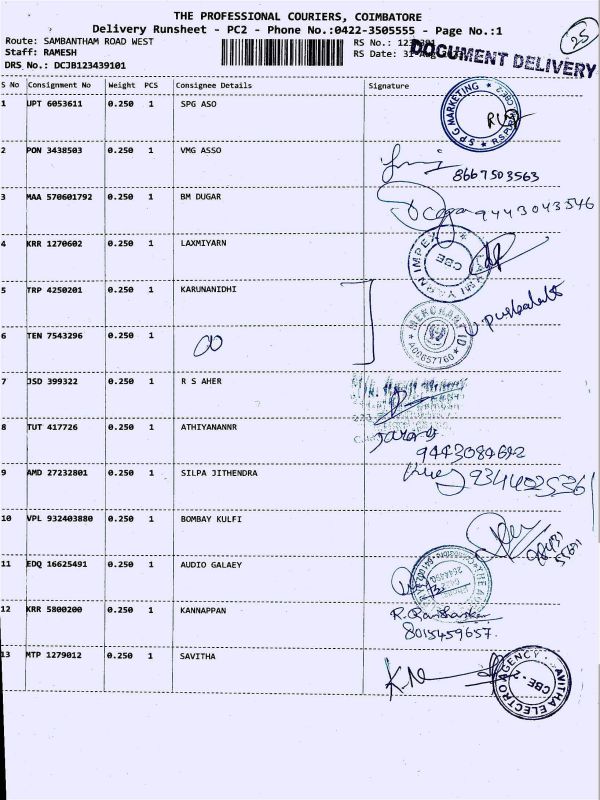 THE PROFESSIONAL COURIERS, COIMBATORE
Delivery Runsheet - PC2 - Phone No.:0422-3505555 - Page No.:1
25
Route: SAMBANTHAM ROAD WEST
Staff: RAMESH
DRS No.: DCJB123439101
RS No.:
RS Date:
DOCUMENT DELIVERY
S No Consignment No Weight PCS Consignee Details Signature
1 UPT 6053611 0.250 1 SPG ASO
SPG MARKETING CBE-2
2 PON 3438503 0.250 1 VMG ASSO
8667503563
3 MAA 570601792 0.250 1 BM DUGAR
9443043546
4 KRR 1270602 0.250 1 LAXMIYARN
IMPEX CBE
5 TRP 4250201 0.250 1 KARUNANIDHI
6 TEN 7543296 0.250 1
MERCHANT ID
A00657760
7 JSD 399322 0.250 1 R S AHER
8 TUT 417726 0.250 1 ATHIYANANNR
9443084692
9 AMD 27232801 0.250 1 SILPA JITHENDRA
9344025361
10 VPL 932403880 0.250 1 BOMBAY KULFI
11 EDQ 16625491 0.250 1 AUDIO GALAEY
12 KRR 5800200 0.250 1 KANNAPPAN
8015459657
13 MTP 1279012 0.250 1 SAVITHA
SAVITHA ELECTRO AGENCY CBE-2